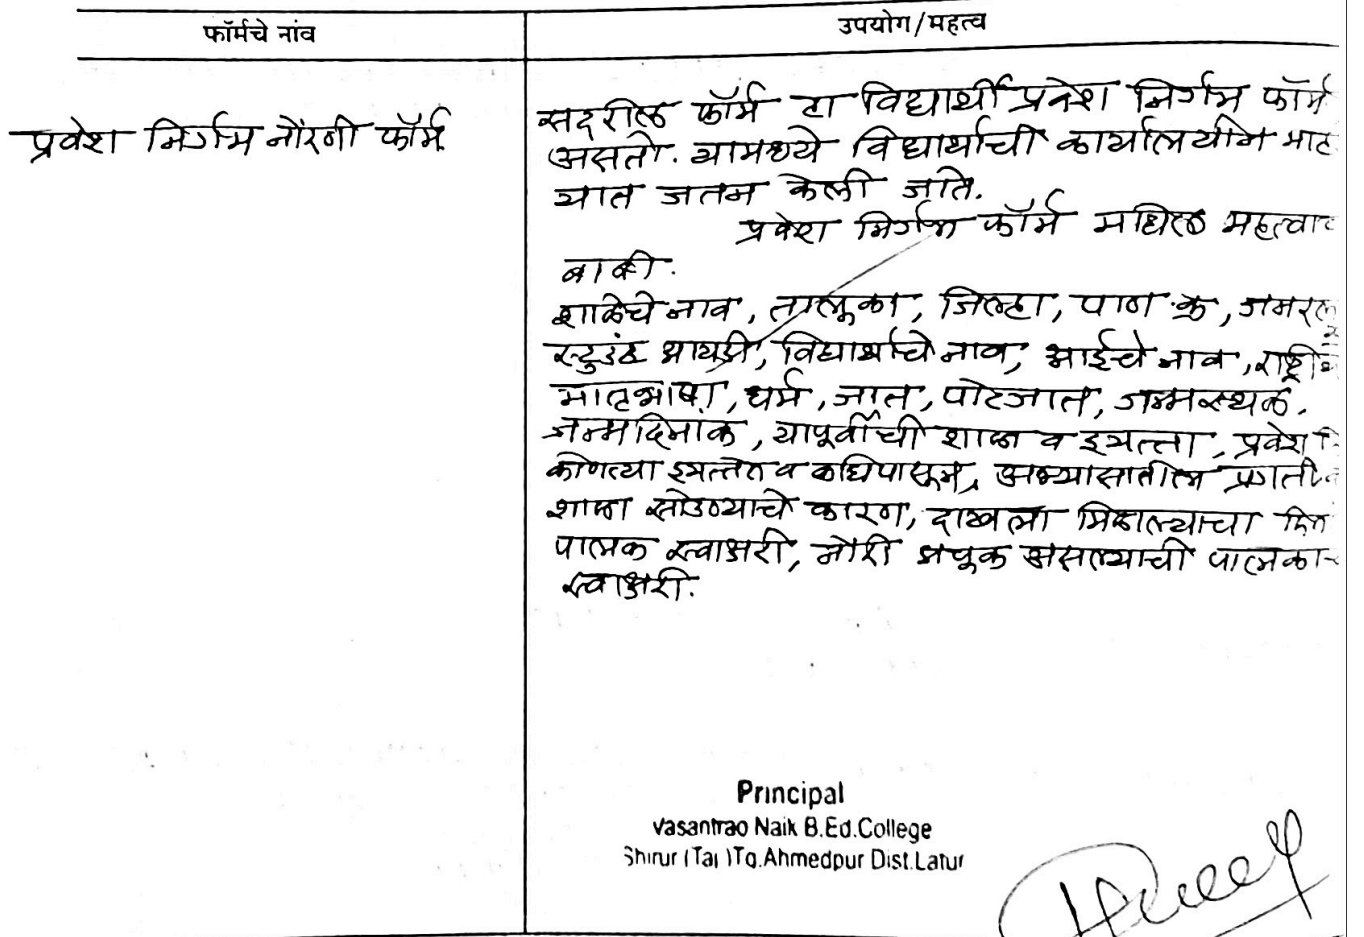 फॉर्मचे नांव
उपयोग/महत्व
प्रवेश निर्गम नोंदणी फॉर्म
सदरील फॉर्म हा विद्यार्थी प्रवेश निर्गम फॉर्म
असतो. यामध्ये विद्यार्थाची कार्यालयीन
यात जतन केली जाते.
प्रवेश निर्गम फॉर्म मधिल
बाबी.
शाळेचे नाव, तालूका, जिल्हा, पान क्र,
स्टुडंट आयडी, विद्यार्थाचे नाव, आईचे नाव,
मातृभाषा, धर्म, जात, पोटजात, जन्मस्थळ,
जन्मदिनांक, यापूर्वीची शाळा व इयत्ता, प्रवेश
कोणत्या इयत्तेत व कधिपासून, अभ्यासातील प्रगती
शाळा सोडण्याचे कारण, दाखला मिळाल्याचा
पालक स्वाक्षरी, नोंदी अचूक असल्याची
स्वाक्षरी.
Principal
Vasantrao Naik B.Ed.College
Shirur (Taj )Tq.Ahmedpur Dist.Latur